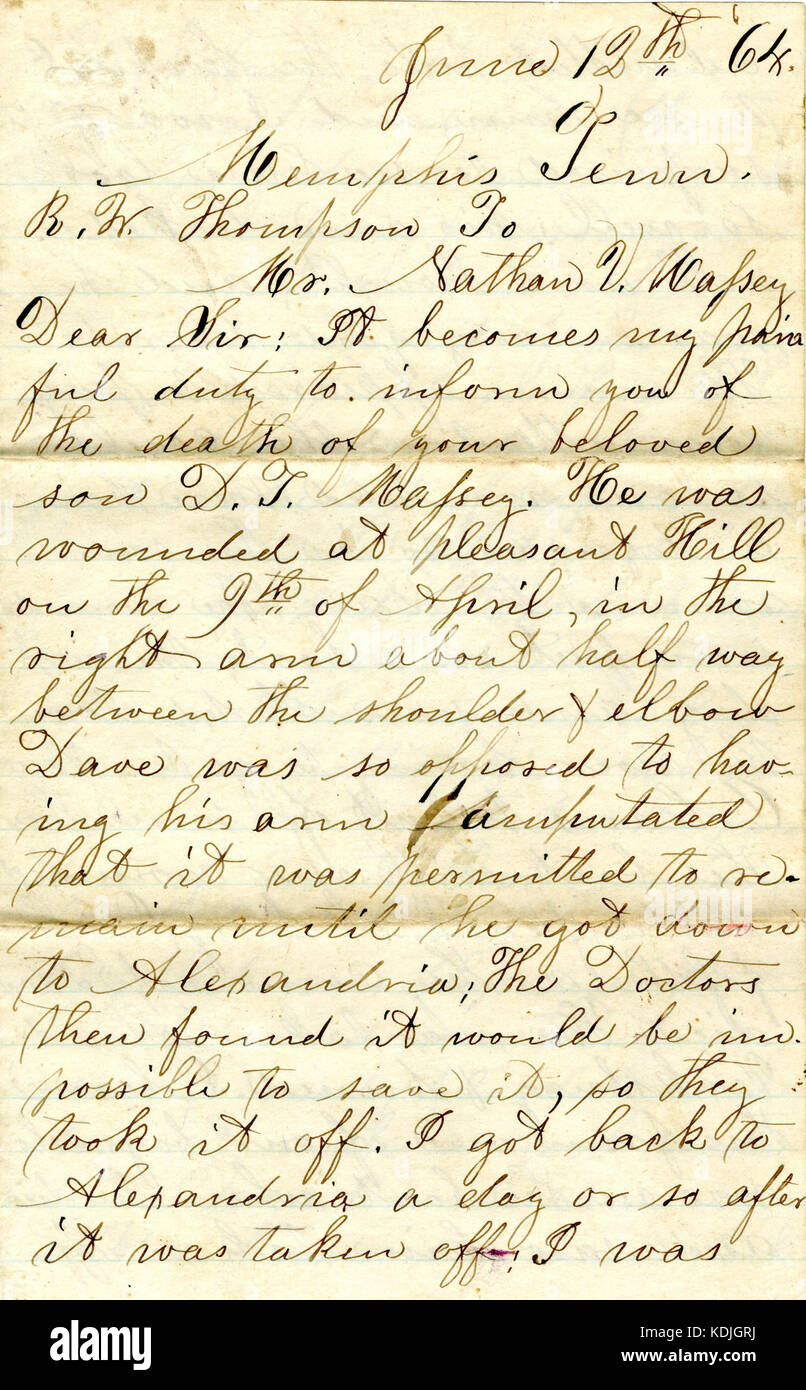 June 12th '64.
Memphis Tenn.
R. W. Thompson To
Mr. Nathan V. Massey
Dear Sir; It becomes my pain
ful duty to inform you of
the death of your beloved
son D. T. Massey. He was
wounded at pleasant Hill
on the 9th of April, in the
right arm about half way
between the shoulder & elbow
Dave was so opposed to hav-
ing his arm amputated
that it was permitted to re-
main until he got down
to Alexandria; The Doctors
then found it would be im-
possible to save it, so they
took it off. I got back to
Alexandria a day or so after
it was taken off; I was
alamy
Image ID: KDJGRJ
www.alamy.com